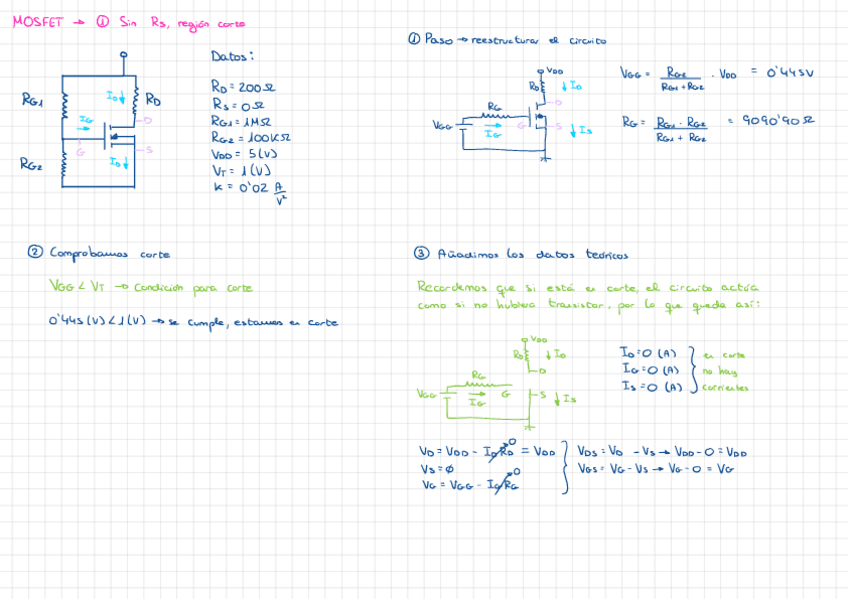 MOSFET → ① Sin Rs, región corte
Datos:
RG1
ID
RD
IG
D
G
S
ID
RG2
RD = 200Ω
RS = 0Ω
RG1 = 1MΩ
RG2 = 100KΩ
VDD = 5(V)
VT = 1(V)
K = 0'02 A/V²
① Paso → reestructurar el circuito
VDD
RD
ID
D
RG
VGG
IG
G
S
IS
VGG = RG2 / RG1 + RG2 · VDD = 0'445V
RG = RG1 · RG2 / RG1 + RG2 = 9090'90Ω
② Comprobamos corte
VGG < VT → Condición para corte
0'445(V) < 1(V) → se cumple, estamos en corte
③ Añadimos los datos teóricos
Recordemos que si está en corte, el circuito actúa
como si no hubiera transistor, por lo que queda así:
VDD
RD
ID
D
RG
VGG
IG
G
S
IS
ID = 0 (A)
IG = 0 (A)
IS = 0 (A)
en corte
no hay
corrientes
VD = VDD - ID RD 0 = VDD
VS = ∅
VG = VGG - IG RG 0
VDS = VD - VS → VDD - 0 = VDD
VGS = VG - VS → VG - 0 = VG